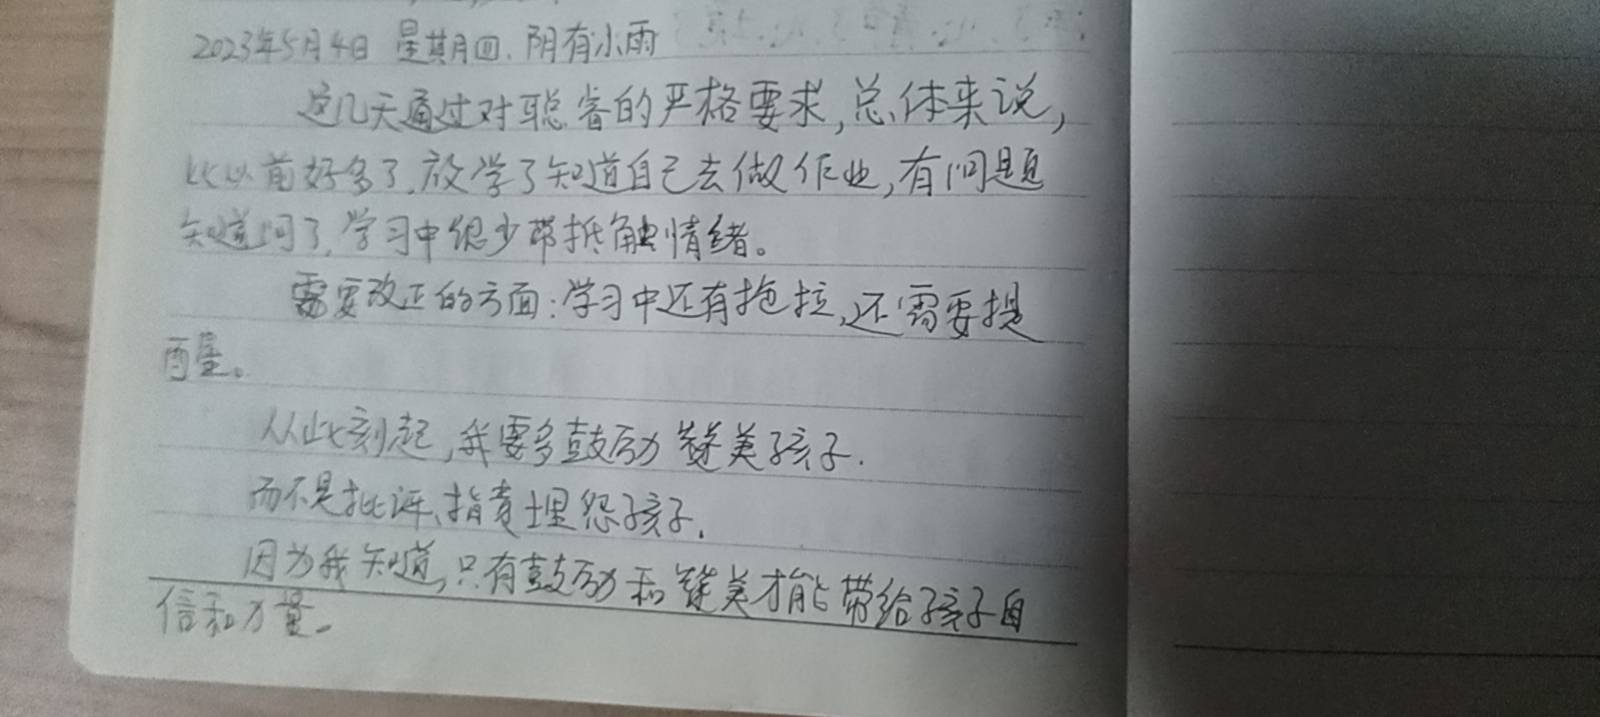 2023年5月4日 星期四.阴有小雨
这几天通过对聪睿的严格要求,总体来说,
比以前好多了.放学了知道自己去做作业,有问题
知道问了,学习中很少带抵触情绪。
需要改正的方面:学习中还有拖拉,还需要提
醒。
从此刻起,我要多鼓励 赞美孩子.
而不是批评、指责埋怨孩子.
因为我知道,只有鼓励和赞美才能带给孩子自
信和力量。